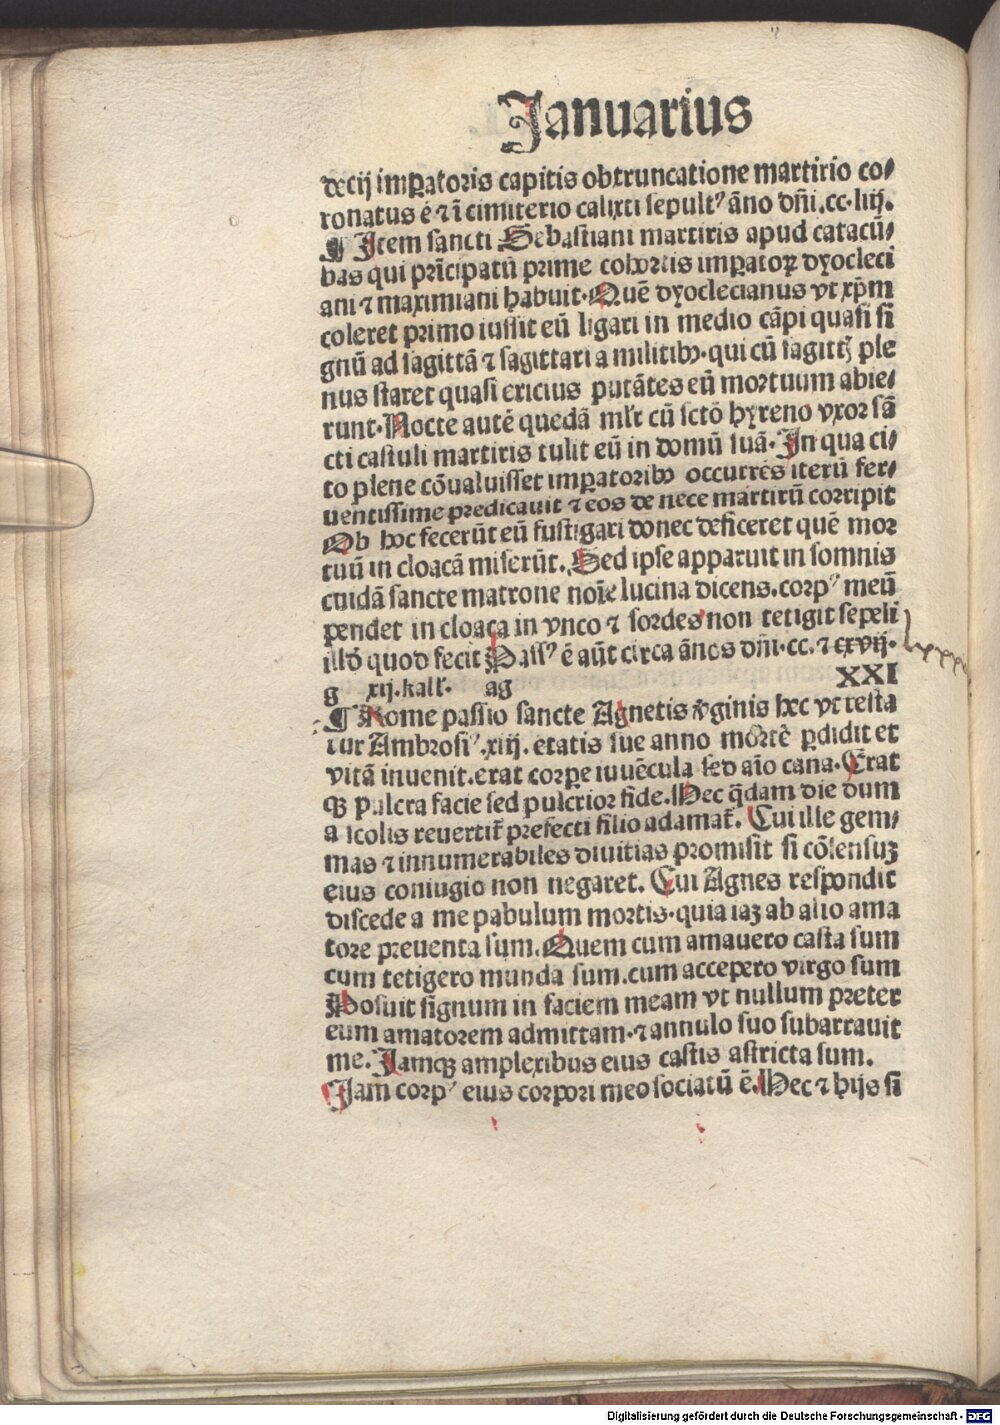 Januarius
decij imꝑatoris capitis obtruncatione martirio co⸗
ronatus ē ⁊ ī cimiterio calixti sepultꝰ ãno dñi.cc.liij.
¶ Item sancti Sebastiani martiris apud catacũ⸗
bas qui prĩcipatũ prime cohortis imꝑatoꝝ dyocleci
ani ⁊ maximiani habuit.Quẽ dyoclecianus vt xp̄m
coleret primo iussit eũ ligari in medio cãpi quasi si
gnũ ad sagittã ⁊ sagittari a militibꝫ.qui cũ sagittꝭ ple
nus staret quasi ericius putãtes eũ mortuum abie⸗
runt.Nocte autẽ quedã ml̃r cũ sctõ hyreno vxor sã
cti castuli martiris tulit eũ in domũ suã.In qua ci⸗
to plene cõualuisset imꝑatoribꝫ occurrẽs iterũ fer⸗
uentissime predicauit ⁊ eos de nece martirũ corripit
Ob hoc fecerũt eũ fustigari donec deficeret quẽ mor
tuũ in cloacã miserũt.Sed ipse apparuit in somnis
cuidã sancte matrone noīe lucina dicens.corpꝰ meũ
pendet in cloaca in vnco ⁊ sordes non tetigit sepeli
illḋ quod fecit Passꝰ ē aũt circa ãnos dñi.cc.⁊ cxvij.
lxxxx
XXI
g xij.kall'. ag
¶ Rome passio sancte Agnetis v̾ginis hec vt testa
tur Ambrosiꝰ.xiij. etatis sue anno mortẽ ꝑdidit et
vitã inuenit.erat corpe iuuẽcula sed aīo cana.Erat
qꝫ pulcra facie sed pulcrior fide.Hec q̃dam die dum
a scolis reuertit̃ prefecti filio adamat̃. Cui ille gem⸗
mas ⁊ innumerabiles diuitias promisit si cõsensuꝫ
eius coniugio non negaret. Cui Agnes respondit
discede a me pabulum mortis.quia iaꝫ ab alio ama
tore preuenta sum.Quem cum amauero casta sum
cum tetigero munda sum.cum accepero virgo sum
Posuit signum in faciem meam vt nullum preter
eum amatorem admittam.⁊ annulo suo subarrauit
me.Jamqꝫ amplexibus eius castis astricta sum.
Jam corpꝰ eius corpori meo sociatũ ē.Hec ⁊ hijs si
Digitalisierung gefördert durch die Deutsche Forschungsgemeinschaft - DFG